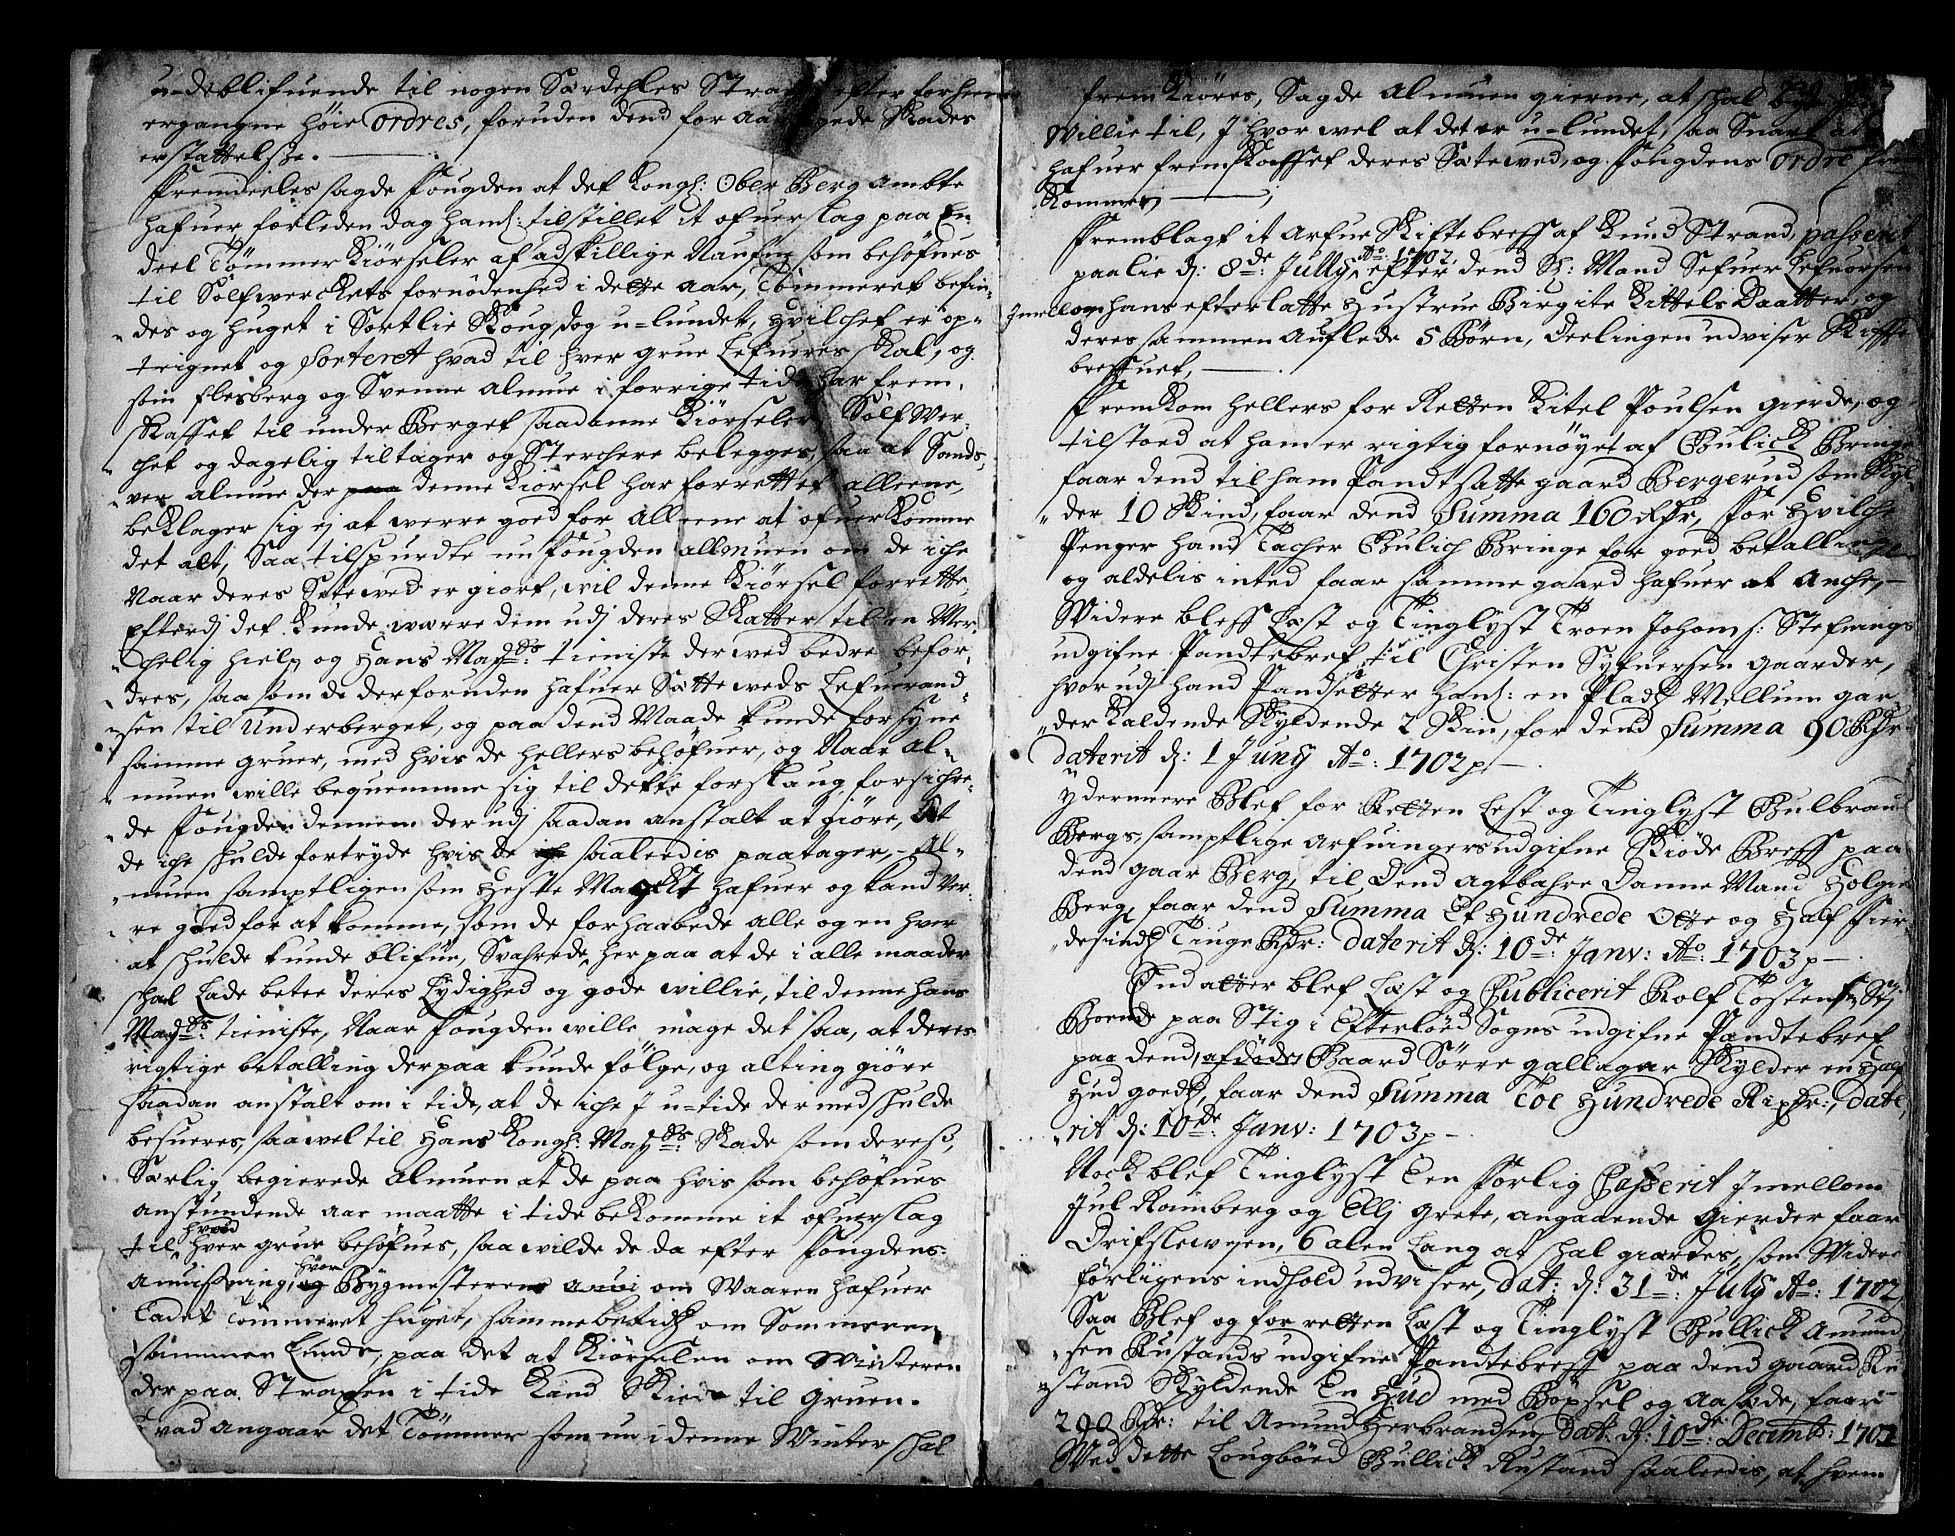 u-deblifuende til nogen Særdehles Straf efter forhen
ergangne høie ordres, foruden dend for aar Skades
erstattelse.
Fremdeeles sagde Fougden at det Kongl: Ober Berg Ambte
hafuer forleden dag hanß: tilstillet it ofuerslag paa En
deel Tømmer Kiørseler af adskillige Naufne som behøfues
til Sølfwerckets fornødenhed i dette aar, Tømmeret befin-
des og huget i Sortlie Skoug dog u-lundet, hvilchet er op-
teignet og Sorteret hvad til hver grue Lefueres skal, og
som flesberg og Svenne Almue i forrige tide har frem-
skaffet til under Berget saadanne Kiørseler, Sølf Wer-
chet og dagelig tiltager og Sterchere belegges, saa at Sands-
ver Almue der paa denne Kiørsel har forrettet alleene,
beklager sig ej at werre goed for alleene at ofuerkomme
det alt, Saa tilspurdte nu Fougden allmuen om de iche
Naar deres Setewed er giort, wil denne Kiørsel forrette,
Efterdj det kunde werre dem udj deres Skatter til en Mer-
chelig hielp og Hans Mayds: tieniste der ved bedre befor-
dres, saa som de derforuden hafuer Sætte weds Lefuerand-
sen til Underberget, og paa dend Maade kunde forsyne
samme gruer, med hvis de hellers behøfuer, og Naar al-
muen wille bequemme sig til dette forslaug, forsichre-
de Fougden dennem der udj saadan anstalt at giøre, At
de iche schulde fortryde hvis de saaleedis paatager, - Al-
muen samptligen som Heste Mackt hafuer og kand Ver-
re goed for at komme, som de forhaabede alle og en hver
at schulde kunde blifue, Svahrede her paa at de i alle maader
schal Lade betee deres Lydighed og gode willie, til denne hans
Mayds: tieniste, Naar Fougden wille mage det saa, at deres
rigtige betalling der paa kunde følge, og alting giøre
saadan anstalt om i tide, at de iche J u-tide der med schulde
besueres, saa wel til Hans Kongl: Mayds: Skade som dereß,
Særlig begierede Almuen at de paa hvis som behøfues
anstundende aar maatte i tide bekomme it ofuerslag
hvad
til hver grue behøfues, saa wilde de da efter Fougdens
hvor
anvißning, og Bygmesteren anvi om Waaren hafuer
Ladet Tømmeret huget, samme betids om Sommeren
sammen Lunde, paa det at Kiørselen om Winteren
der paa Straxen i tide kand Skiee til gruen.
vad angaar det Tømmer som nu i denne Winter schal
frem Kiøres, Sagde Almuen gierne, at schal
Willie til, J hvor wel at det er u-lundet, saa Snart at
hafuer fremskaffet deres Sætewed, og Fougdens ordre
Kommer
Fremblagt it Arfue Skiftebreff af Knud Strand, passerit
Ao: 1702,
paalie d: 8de: July, efter dend Sl: Mand Sefuer Lefuorsen
Jmellom hans efterlatte Hustrue Birgite Kittels Daatter, og
deres sammen Auflede 5 Børn, Deelingen udviser Skifte
breffuet,
Fremkom hellers for Retten Kitel Poulsen gierde, og
tilstoed at ham er rigtig fornøyet af Gulick Bringe
faar dend til ham Pandtsatte gaard Bergerud som Skyl-
der 10 Skind, faar dend Summa 160 Rdr, for hvilche
Penger hand Tacher Gulich Bringe for goed betalling
og aldelis inted faar samme gaard hafuer at Anche,
Widere bleff Læst og Tinglyst Troen Johans: Stefnings
udgifne Pandtebref til Christen Syfuersen gaarder,
hvor udj hand Pandsetter hanß: en Pladß Mellum gar
der Kaldende Skyldende 2 Skin, for dend Summa 90 Rdr
daterit d: 1 Juny Ao: 1702
ydermeere Blef for Retten Lest og Tinglyst Gulbrand
Bergs, samptlige Arfuingers udgifne Skiøde Breff paa
dend gaar Berg, til Dend Agtbahre Danne Mand Holgier
Berg, faar dend Summa Et Hundrede Otte og Half Fier-
desindß Tiuge Rdr: daterit d: 10de: Janv: Ao: 1703
End atter blef Læst og Publicerit Rolf Tostensen Sti
Boende paa Stig i Efterløed Sogns udgifne Pandtebref
paa dend, afdøde Gaard Sørre gallagar Skylder en Half
Hud goedß, faar dend Summa Toe Hundrede Rixdr:, date
rit d: 10de: Janv: 1703
Nock blef Tinglyst Een Forlig Passerit Jmellom
Jul Ramberg og Ellj Grete, angaaende Gierder faar
Drifslewejen, 6 alen Lang at schal giærdes, som Widere
forligens indhold udviser, dat: d: 31de: July Ao: 1702
Saa Blef og for retten Læst og Tinglyst Gullick Amund
sen Rustands udgifne Pandtebreff paa dend gaard Ru
stand Skyldende En Hud med Bøxsel og Aasæde, faar
290 Rdr: til Amund Herbrandsen, dat: d: 10de: Decimb: 1702
Med dette Lougbøed Gullick Rustand saaleedis, at hvem